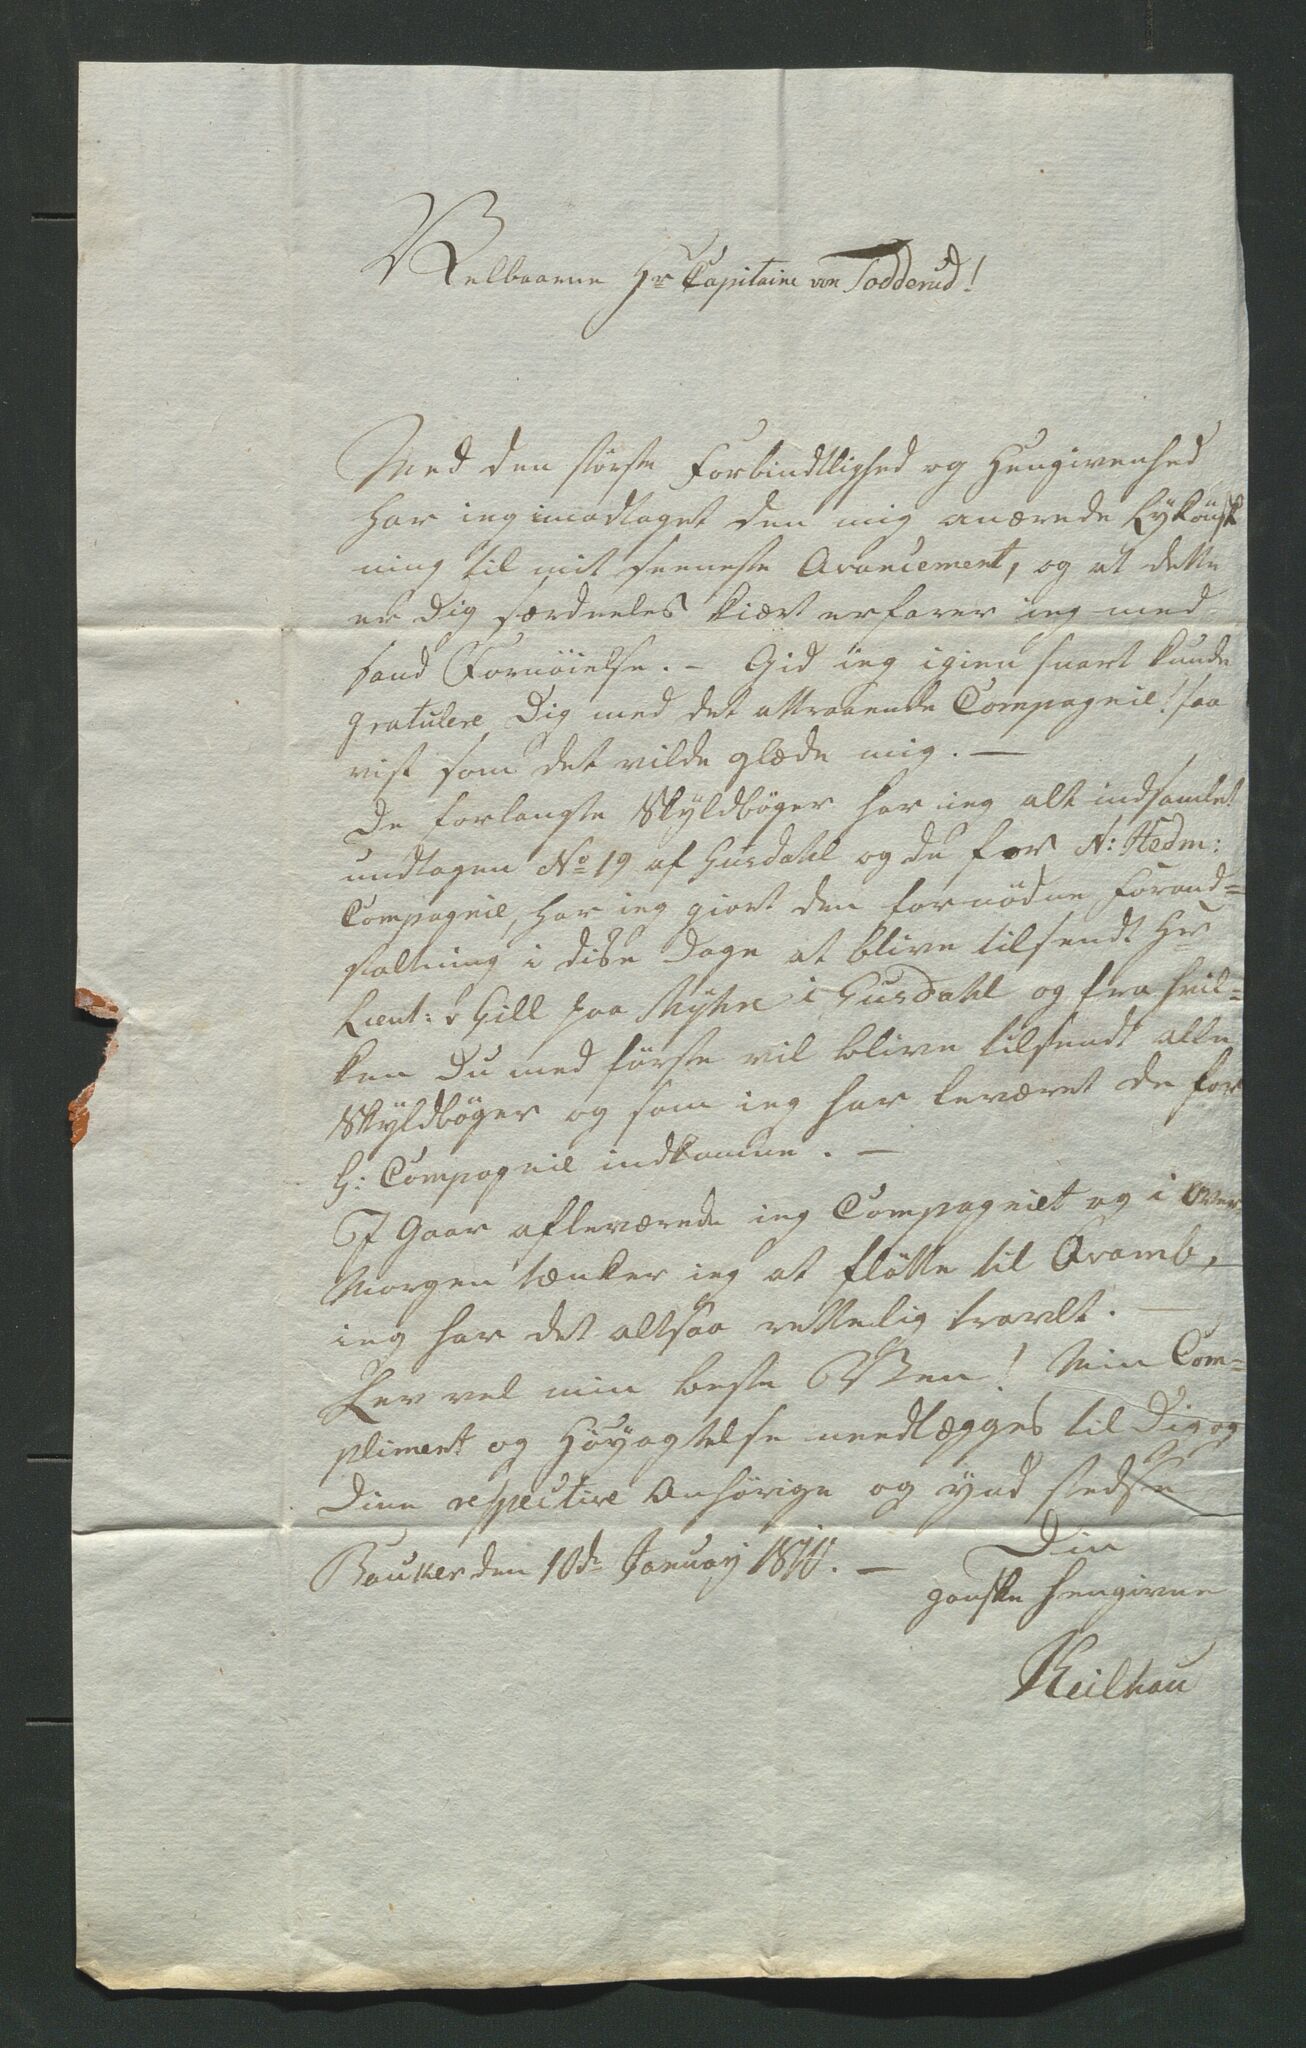 Velbaarne Hr Capitaine von Todderud!
Med den störste Forbindtlighed og Hengivenhed
har ieg imodtaget den mig anærede Lykönsk
ning til mit seeneste Avancement, og at dette
er Dig særdeeles kiært erfarer ieg med
sand Fornöielse. – Gid ieg igien snart kunde
gratulere Dig med det attraaende Compagnie! saa
vist som det vilde glæde mig. —
De forlangte Skyldböger har ieg alt indsamlet
undtagen No 19 af Gusdahl og du for N: Hedm:
Compagnie, har ieg giort den fornödne Forand=
staltning i disse Dage at blive tilsendt Hr
Lieut: v Gill paa Myhre i Gusdahl og fra hvil=
ken Du med förste vil blive tilsendt alle
Skyldböger og som ieg har leværet de for
H: Compagnie indkomne. —
I Gaar afleværede ieg Compagniet og i Over
Morgen tænker ieg at flötte til Aramb,
ieg har det altsaa rettelig travlt. —
Lev vel min beste Ven! Min Com=
pliment og Höyagtelse needlægges til Dig og
Dine respective Anhörige og ynd stedse
Din
Bauker den 10de January 1811. —
ganske hengivne
Keilhau